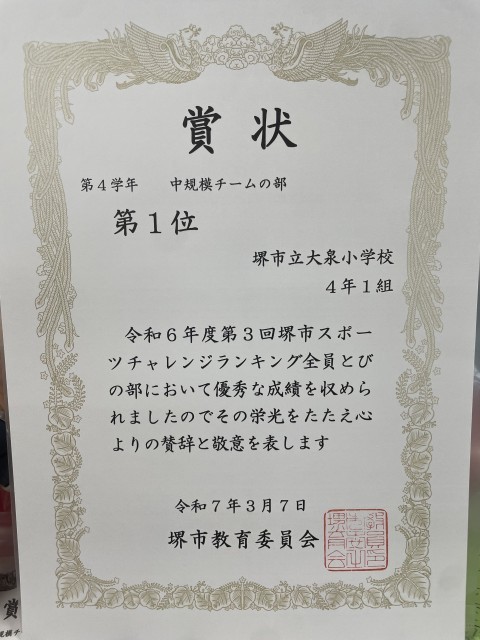 賞状
第４学年　中規模チームの部
第１位
堺市立大泉小学校
４年１組
令和６年度第３回堺市スポー
ツチャレンジランキング全員とび
の部において優秀な成績を収めら
れましたのでその栄光をたたえ心
よりの賛辞と敬意を表します
令和７年３月７日
堺市教育委員会
賞
規模チ